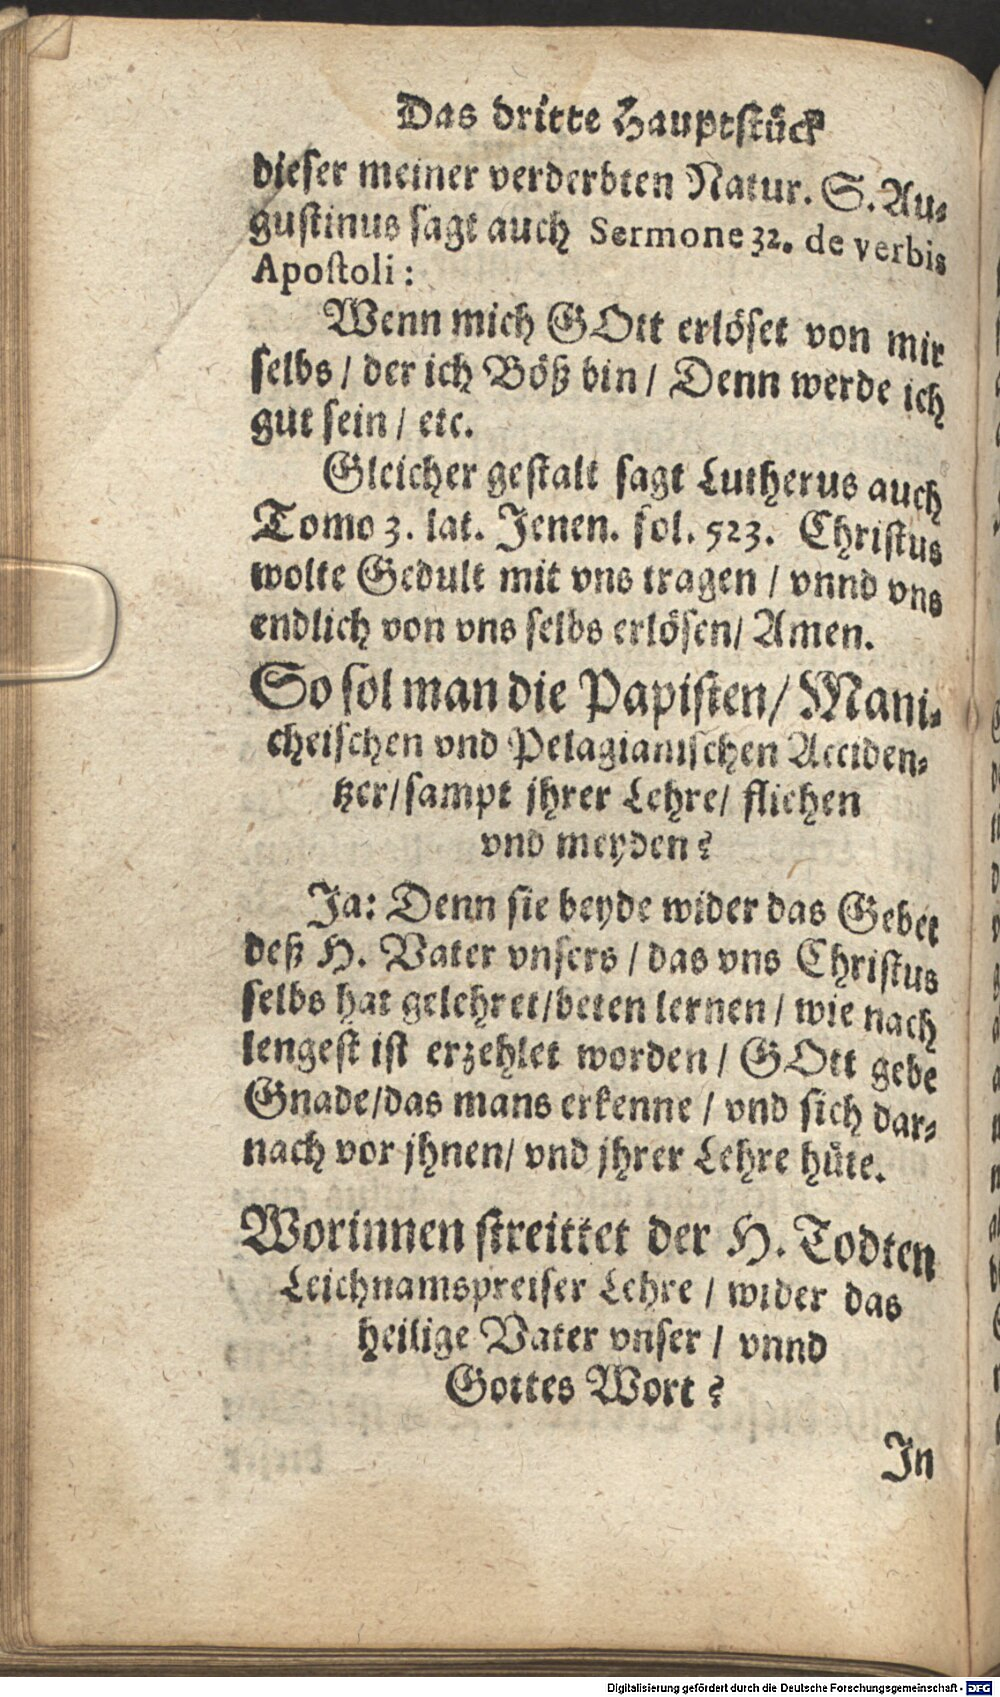 Das dritte Hauptstück
dieser meiner verderbten Natur. S. Au-
gustinus sagt auch Sermone 32. de verbis
Apostoli:
Wenn mich GOtt erlöset von mir
selbs / der ich Böß bin / Denn werde ich
gut sein / etc.
Gleicher gestalt sagt Lutherus auch
Tomo 3. lat. Jenen. fol. 523. Christus
wolte Gedult mit vns tragen / vnnd vns
endlich von vns selbs erlösen / Amen.
So sol man die Papisten / Mani-
cheischen vnd Pelagianischen Acciden-
tzer / sampt jhrer Lehre / fliehen
vnd meyden?
Ja: Denn sie beyde wider das Gebet
deß H. Vater vnsers / das vns Christus
selbs hat gelehret / beten lernen / wie nach
lengest ist erzehlet worden / GOtt gebe
Gnade / das mans erkenne / vnd sich dar-
nach vor jhnen / vnd jhrer Lehre hüte.
Worinnen streittet der H. Todten
Leichnamspreiser Lehre / wider das
heilige Vater vnser / vnnd
Gottes Wort?
In
Digitalisierung gefördert durch die Deutsche Forschungsgemeinschaft - DFG